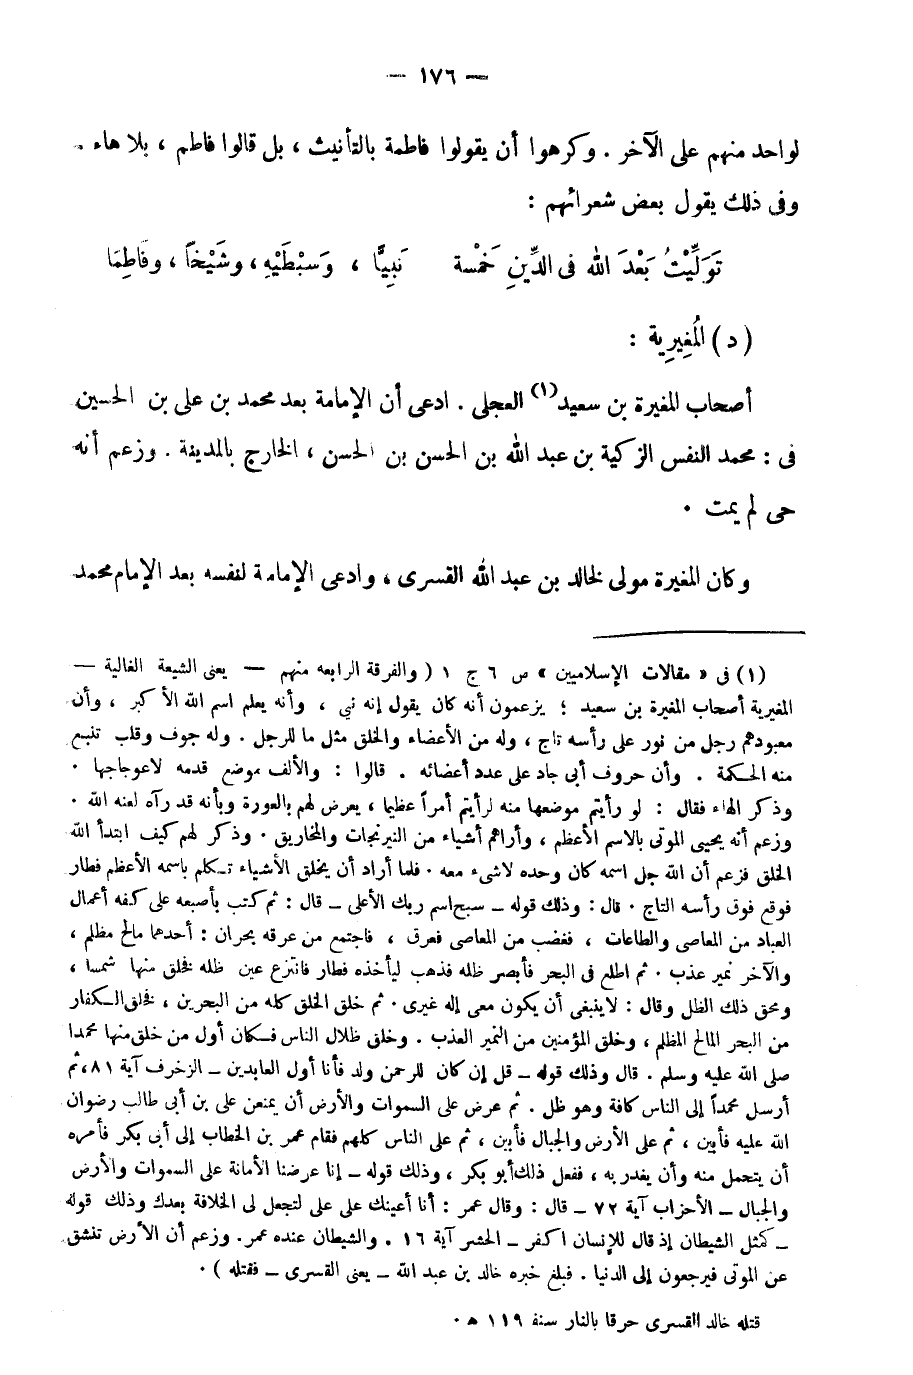 — ١٧٦ —
لواحد منهم على الآخر . وكرهوا أن يقولوا فاطمة بالتأنيث ، بل قالوا فاطم ، بلا هاء .
وفى ذلك يقول بعض شعرائهم :
تَوَلَّيْتُ بَعْدَ الله فى الدِّينِ خَمْسة نَبِيًّا ، وَسبْطَيْهِ ، وشَيْخاً ، وفَاطِمَا
( د ) المُغِيرِية :
أصحاب المغيرة بن سعيد(١) العجلى . ادعى أن الإمامة بعد محمد بن على بن الحسين
فى : محمد النفس الزكية بن عبد الله بن الحسن بن الحسن ، الخارج بالمدينة . وزعم أنه
حى لم يمت .
وكان المغيرة مولى لخالد بن عبد الله القسرى ، وادعى الإمامة لنفسه بعد الإمام محمد
(١) فى « مقالات الإسلاميين » ص ٦ ج ١ ( والفرقة الرابعه منهم — يعنى الشيعة الغالية —
المغيرية أصحاب المغيرة بن سعيد ؛ يزعمون أنه كان يقول إنه نبي ، وأنه يعلم اسم الله الأكبر ، وأن
معبودهم رجل من نور على رأسه تاج ، وله من الأعضاء والخلق مثل ما للرجل . وله جوف وقلب تنبع
منه الحكمة . وأن حروف أبى جاد على عدد أعضائه . قالوا : والألف موضع قدمه لاعوجاجها .
وذكر الهاء فقال : لو رأيتم موضعها منه لرأيتم أمراً عظيما ، يعرض لهم بالعورة وبأنه قد رآه لعنه الله .
وزعم أنه يحيى الموتى بالاسم الأعظم ، وأراهم أشياء من النيرنجات والمخاريق . وذكر لهم كيف ابتدأ الله
الخلق فزعم أن الله جل اسمه كان وحده لاشىء معه . فلما أراد أن يخلق الأشياء تكلم باسمه الأعظم فطار
فوقع فوق رأسه التاج . قال : وذلك قوله – سبح اسم ربك الأعلى – قال : ثم كتب بأصبعه على كفه أعمال
العباد من المعاصى والطاعات ، فغضب من المعاصى فعرق ، فاجتمع من عرقه بحران : أحدهما مالح مظلم ،
والآخر نمير عذب . ثم اطلع فى البحر فأبصر ظله فذهب ليأخذه فطار فانتزع عين ظله فخلق منها شمسا ،
ومحق ذلك الظل وقال : لاينبغى أن يكون معى إله غيرى . ثم خلق الخلق كله من البحرين ، فخلق الكفار
من البحر المالح المظلم ، وخلق المؤمنين من النمير العذب . وخلق ظلال الناس فكان أول من خلق منها محمدا
صلى الله عليه وسلم . قال وذلك قوله – قل إن كان للرحمن ولد فأنا أول العابدين – الزخرف آية ٨١ ، ثم
أرسل محمداً إلى الناس كافة وهو ظل . ثم عرض على السموات والأرض أن يمنعن على بن أبى طالب رضوان
الله عليه فأبين ، ثم على الأرض والجبال فأبين ، ثم على الناس كلهم فقام عمر بن الخطاب إلى أبى بكر فأمره
أن يتحمل منه وأن يغدر به ، ففعل ذلك أبو بكر ، وذلك قوله – إنا عرضنا الأمانة على السموات والأرض
والجبال – الأحزاب آية ٧٢ – قال : وقال عمر : أنا أعينك على على لتجعل لى الخلافة بعدك وذلك قوله
– كمثل الشيطان إذ قال للإنسان اكفر – الحشر آية ١٦ . والشيطان عنده عمر . وزعم أن الأرض تنشق
عن الموتى فيرجعون إلى الدنيا . فبلغ خبره خالد بن عبد الله – يعنى القسرى – فقتله ) .
قتله خالد القسرى حرقا بالنار سنة ١١٩ هـ .